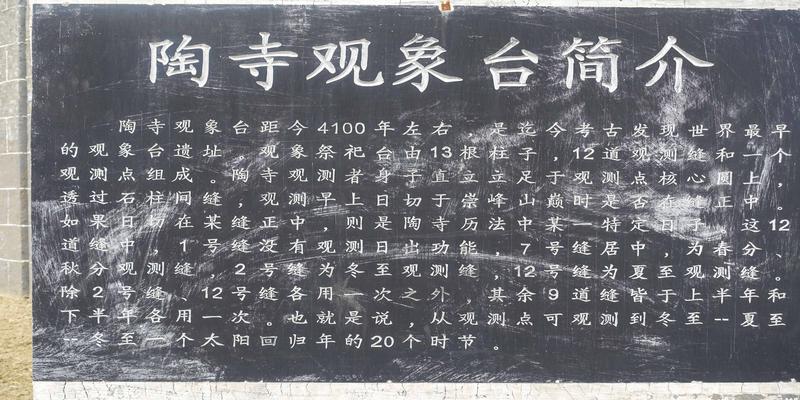 陶寺观象台简介
陶寺观象台距今4100年左右,是迄今考古发现世界最早
的观象台遗址。观象祭祀台由13根柱子12道观测缝和一个
观测点组成。陶寺观测者身子直立,足于观测点核心圆上,
透过石柱间缝,观测早上日切于崇峰山巅时是否在缝正中。
如果日切在某缝正中,则是日陶寺历法中某一特定日子。这12
道缝中,1号缝没有观测日出功能,7号缝居中,为春分、
秋分观测缝,2号缝为冬至观测缝,12号缝为夏至观测缝。
除2号缝、12号缝各用一次之外,其余9道缝皆于上半年和
下半年各用一次。也就是说,从观测点可观测到冬至--夏至
--冬至一个太阳回归年的20个时节。